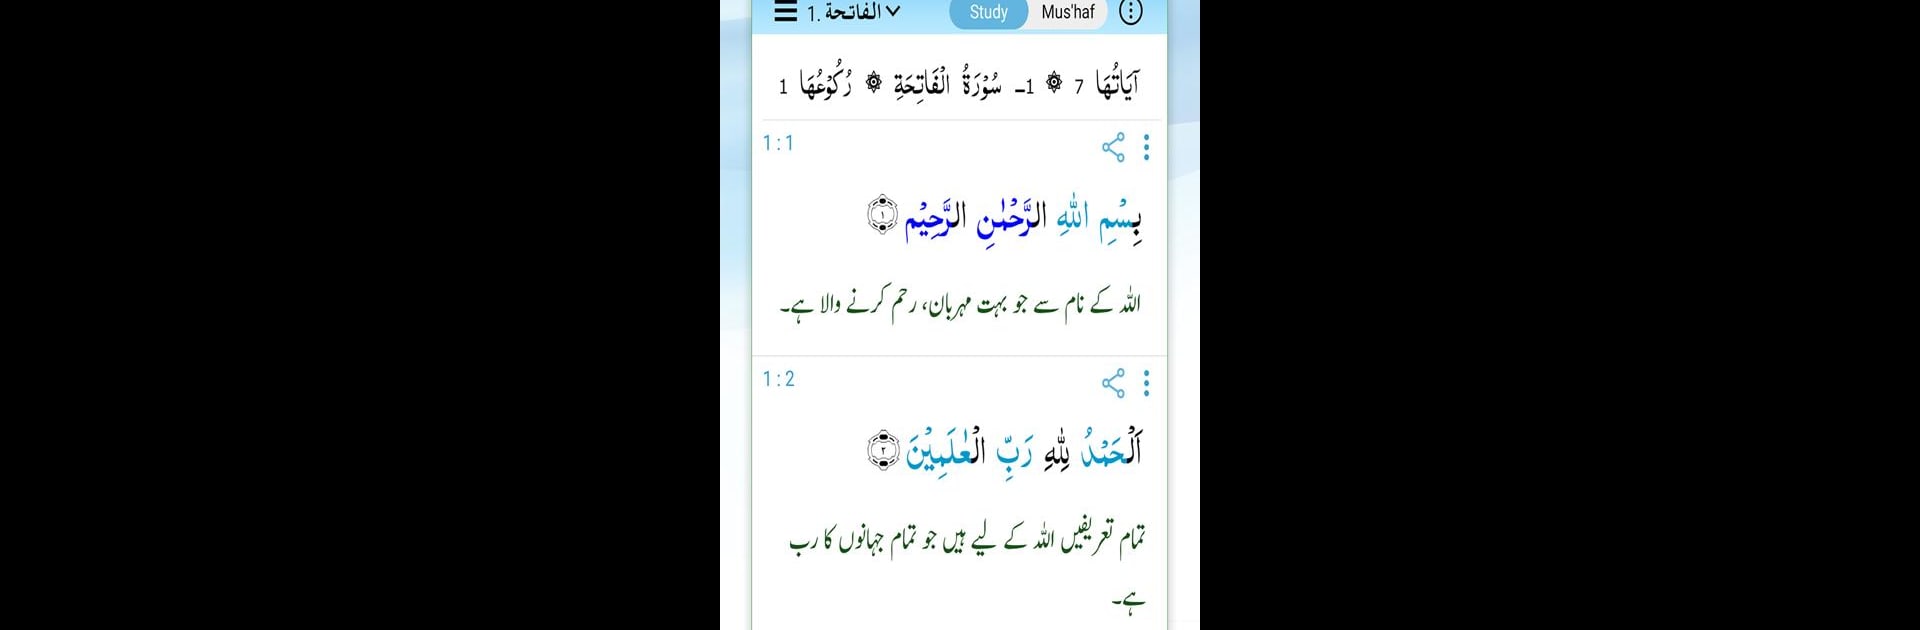 ☰ 1. الفاتحة Study Mus'haf
آيَاتُهَا 7 ۞ 1- سُوْرَةُ الْفَاتِحَةِ ۞ رُكُوْعُهَا 1
1:1
بِسْمِ اللّٰهِ الرَّحْمٰنِ الرَّحِيْمِ ۝١
اللہ کے نام سے جو بہت مہربان، رحم کرنے والا ہے۔
1:2
اَلْحَمْدُ لِلّٰهِ رَبِّ الْعٰلَمِيْنَ ۝٢
تمام تعریفیں اللہ کے لیے ہیں جو تمام جہانوں کا رب
ہے۔